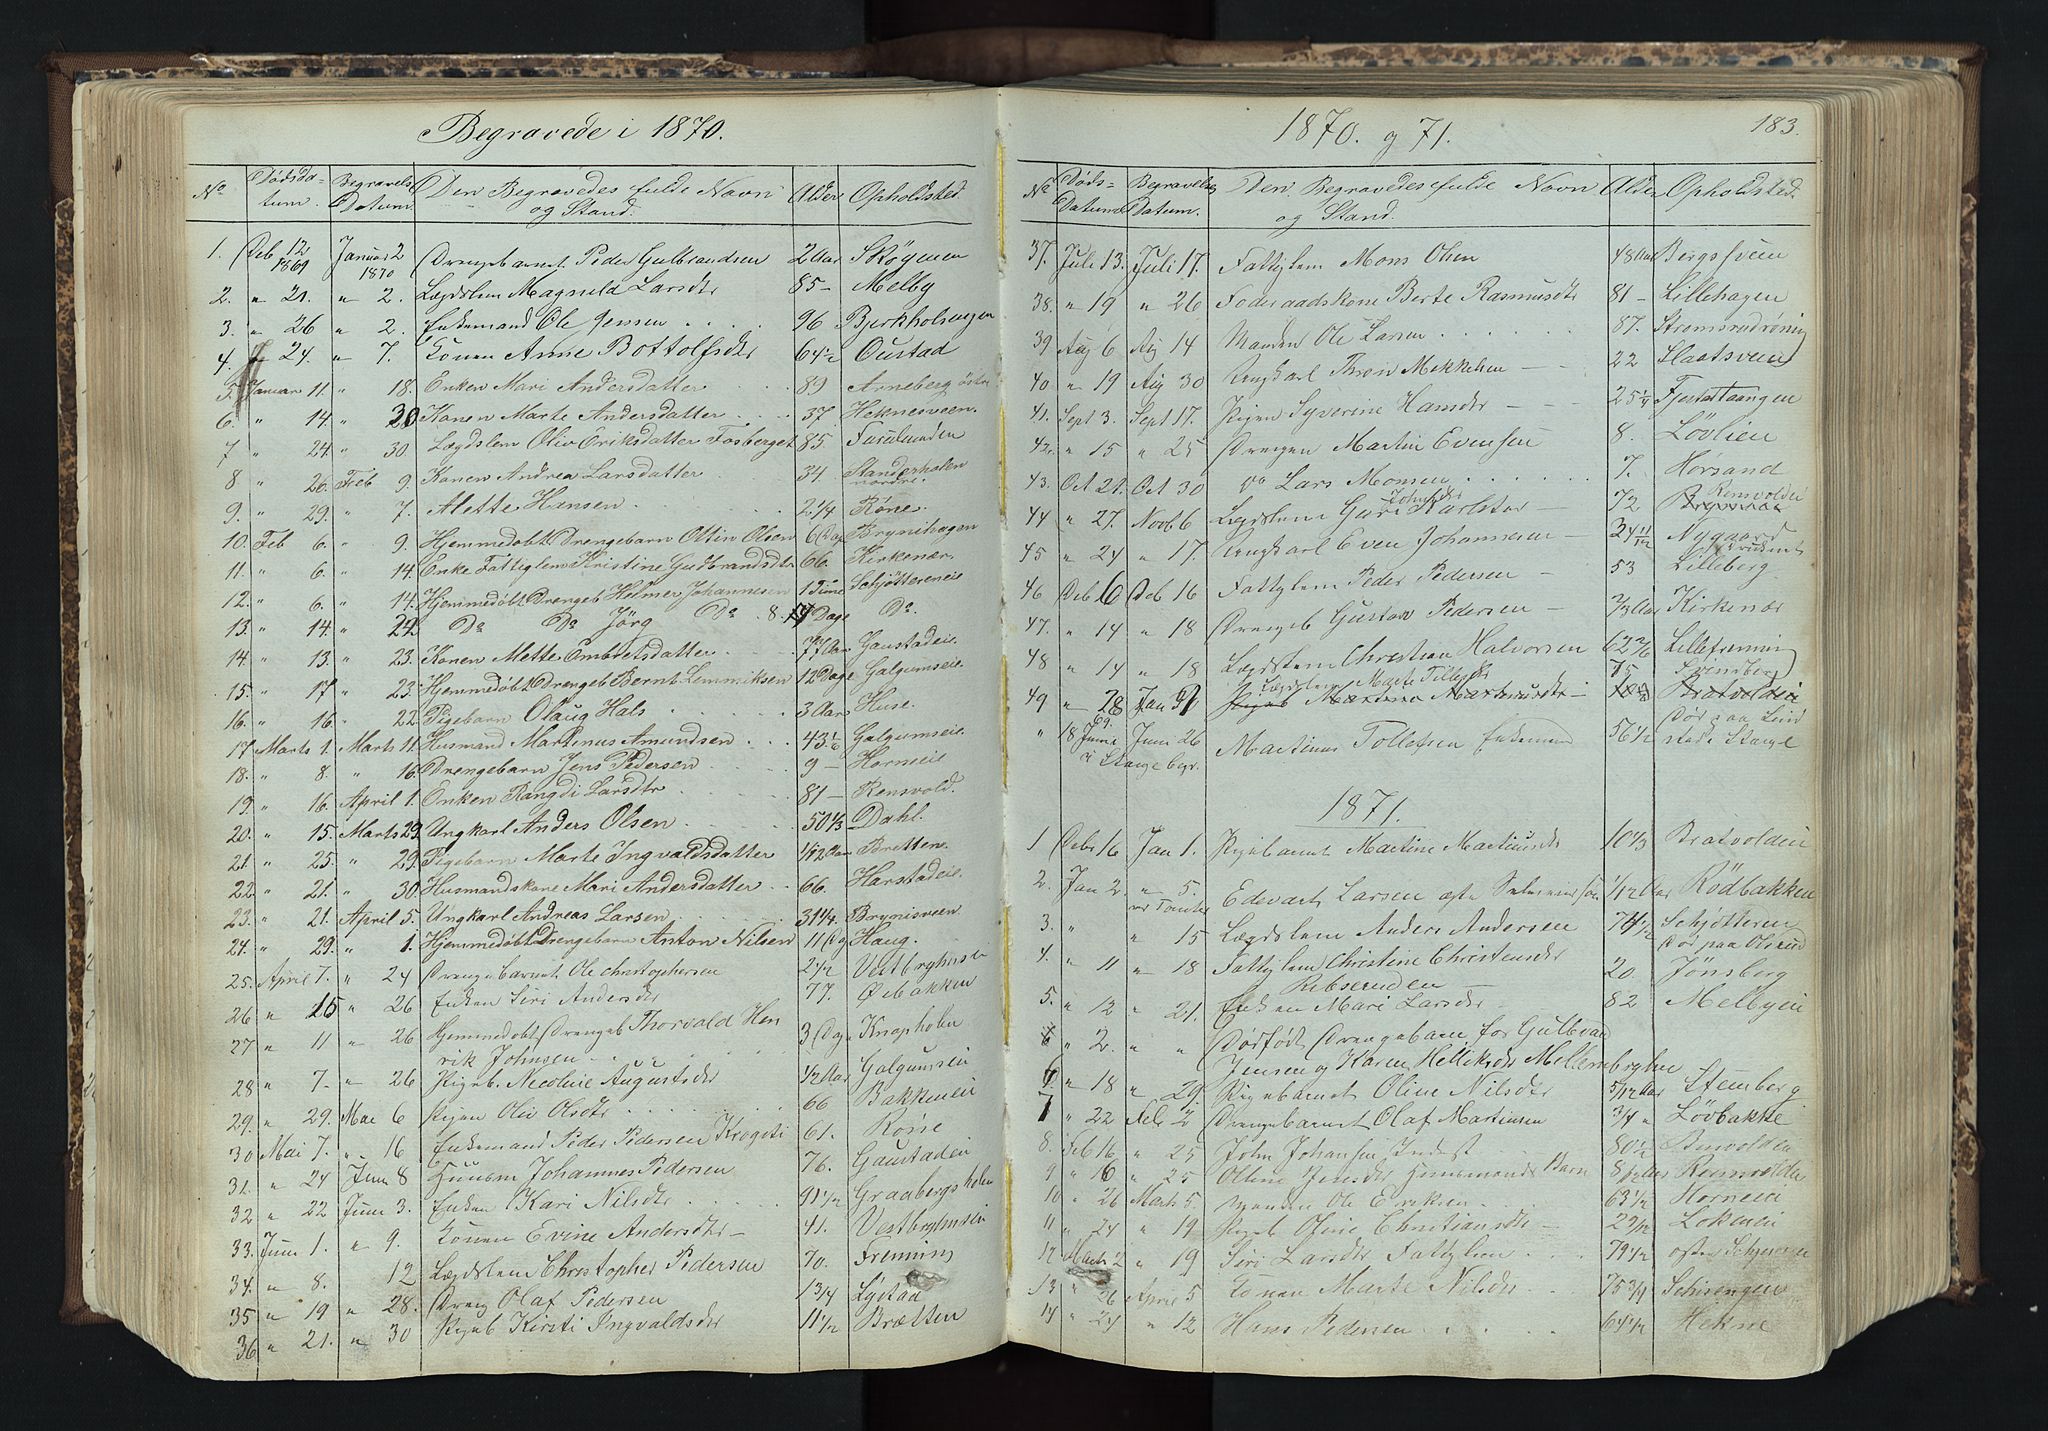 Begravede i 1870.
No Dødsdatum. Begravels Datum. Den Begravedes fulde Navn og Stand. Alder Opholdsted.
1. Deb 12 1869 Januar 2 1870 Drengebarnet Peder Gulbrandsen 2 Aar Skøgmen
2. " 21. " 2. Lægdslem Magnild Larsdtr 85 - Melby
3. " 26 " 2. Enkemand Ole Jenssen 96 Bjerkholsengen
4. " 24. " 7. Konen Anne Bottolfsdtr 64 1/2 Oustad
5. Januar 11. " 18. Enken Mari Andersdatter 89 Arneberg østre
6. " 14. " 30 Konen Marte Andersdatter 37. Heknesveen.
7 " 24 " 30 Lægdslem Oliv Eriksdatter Fosberget 85 Furulunden
8 " 26. Feb 9. Konen Andrea Larsdatter 34 Standerholen nordre.
9. " 29. " 7. Alette Hansen 2 1/4 Røne.
10. Feb 6. " 9. Hjemmedøbt Drengebarn Ottin Olsen 6 Dag Brynihagen
11. " 6. " 14. Enke Fattiglem Kristine Gudbrandsdtr 66. Kirkenær.
12. " 6. " 14. Hjemmedøbt Drengeb Helmer Johannesen 1 Time Schjøttereneie
13. " 14. " 24. Do Do Jörg Do 8. Dage Do.
14 " 13. " 23. Konen Mette Ombretsdatter 77 Aar Gaustadeie.
15. " 17. " 23. Hjemmedøbt Drengeb Bernt Lemmiksen 12 Dage Galgumseie.
16. " 16. " 22. Pigebarn Olaug Hals 3 Aar Huse.
17 Marts 1. Marts 11. Husmand Martenus Amundsen 43 1/2 Galgumseie.
18. " 8. " 16. Drengebarn Jens Pedersen 9 - Horneie
19 " 16. April 1. Enken Rangdi Larsdtr 81 - Rensvold.
20. " 15. Marts 29. Ungkarl Anders Olsen 50 1/3 Dahl.
21. " 25. " 29. Pigebarn Marte Ingvaldsdatter 1/12 Aar Bretten.
22. " 21. " 30. Husmandskone Mari Andersdatter 66. Harstadeie.
23. " 21. April 5. Ungkarl Andreas Larsen 31 1/4. Brynisveen
24. " 29. " 1. Hjemmedøbt Drengebarn Anton Nilsen 11 Dg Haug.
25. April 7. " 24 Drengebarnet Ole Christophersen 2 1/2
26 " 15 " 26 Enken Siri Andersdtr 77. Øibakken
27 " 11 " 26 Hjemmedøbt Drengeb Thorvald Hen
rik Johnsen 3 Dage Knapholen
28 " 7. " 26 Pigeb. Nicoline Augustsdtr 1/2 Aar Galgumseie
29. " 29. Mai 6 Pigen Oliv Olsdtr 66 Bakkeneie
30 Mai 7. " 16 Enkemand Peder Pedersen 61. Røne
31. " 24 Juni 8 Huusm Johannes Pedersen 76. Gaustadeie
32 " 22 Juni 3. Enken Kari Nilsdtr 91 1/2 Graabergsholen
33. Juni 1. " 9. Konen Evine Andersdtr - 41. Vestbyhnseie
34. " 8. 12 Lægdslem Christopher Pedersen 70. Frenning
35 " 19 " 28. Dreng Olaf Pedersen 13/4 Lystad
36 " 21. " 30 Pigeb Kirsti Ingvaldsdtr 11 1/2 Brætten
1870. g 71. 183.
No Døds-Datum Begravelses Datum. Den Begravedes fulde Navn og Stand. Alder Opholdsted.
37. Juli 13. Juli 17. Fattiglem Mons Olsen 48 Aar Bergssveen
38. " 19 " 26 Føderaadskone Berte Rasmusdtr 81 - Lillehagen
39 Aug 6 Aug 14 Manden Ole Larsen 87.
40 " 19 Aug 30 Ungkarl Thron Mekkelsen - 22 Slaatsveen
41. Sept 3. Sept 17. Pigen Syverine Hansdtr - 25 1/4
42. " 15 " 25 Drengen Martin Evensen 8. Løvlien
43. Oct 21. Oct 30 do Lars Monsen 7. Hørsand
44 " 27. Novb 6 Lægdslem Guri Johnsdtr Karlstad - 72 Rensvolden
45 " 24 " 17. Ungkarl Even Johannesen 34 11/12 Nygaard
46 Deb 6 Deb 16 Fattiglem Peder Pedersen - 53 Lilleberg
47. " 14 " 18 Drengeb Gustav Pedersen - 2/3 Aar Kirkenær
48 " 14 " 18 Lægdslem Christian Halvorsen 62 Lillefrenning
49 " 28 Jan 1 Lægdslem Marte Tillesdtr 75 Svineberg
Pigeb Martine Martinusdtr Bratvoldeie
" 18 Juni 69. Juni 26 Martinus Tollefsen Enkemand 56 1/2 Død paa Lind
i Stange begr. stad i Stange
1871.
1 Debr 16 Jan 1. Pigebarnet Martine Martinusdtr 10 1/3 Bratvoldeie
2. Jan 2. " 5. Edevart Larsen 1/12 Aar Rødbakken
3. " " 15 Lægdslem Anders Andersen 74 1/2 Schjøtteren
Død paa Olsrud
4. " 11 " 18 Fattiglem Christine Christensdtr
Ribseruden - 20. Jønsberg
5. " 12 " 21. Enken Mari Larsdtr - 82 Melbyeie
" 2. " " Dødfødt Drengebarn for Gulbrand
Jensen og Karen Helliksdtr Mellembyhne
6 " 18 " 29. Pigebarnet Oline Nilsdtr 5/12 Aar Stemberg
7 " 22 Feb 2 Drengebarnet Olaf Martinsen 3/4 " Løvbakke
8. Feb 16 " 25 John Johansen Inderst 80 1/2
9 " 16 " 25 Oline Jensdtr Huusmands Barn 8/12 Aar Rensvolden
10 " 26 Marts 5. Manden Ole Eriksen 63 1/2 Horneie
11 " 24 " 19 Pigeb Oline Christiansdtr - 2 Lokeneie
12 Marts 2 " 19 Siri Larsdtr Fattiglem 79 1/2
13. " 26 April 5 Konen Marte Nilsdtr 75 3/4
14 " 24 " 12 Hans Pedersen 64 1/2 Hekne